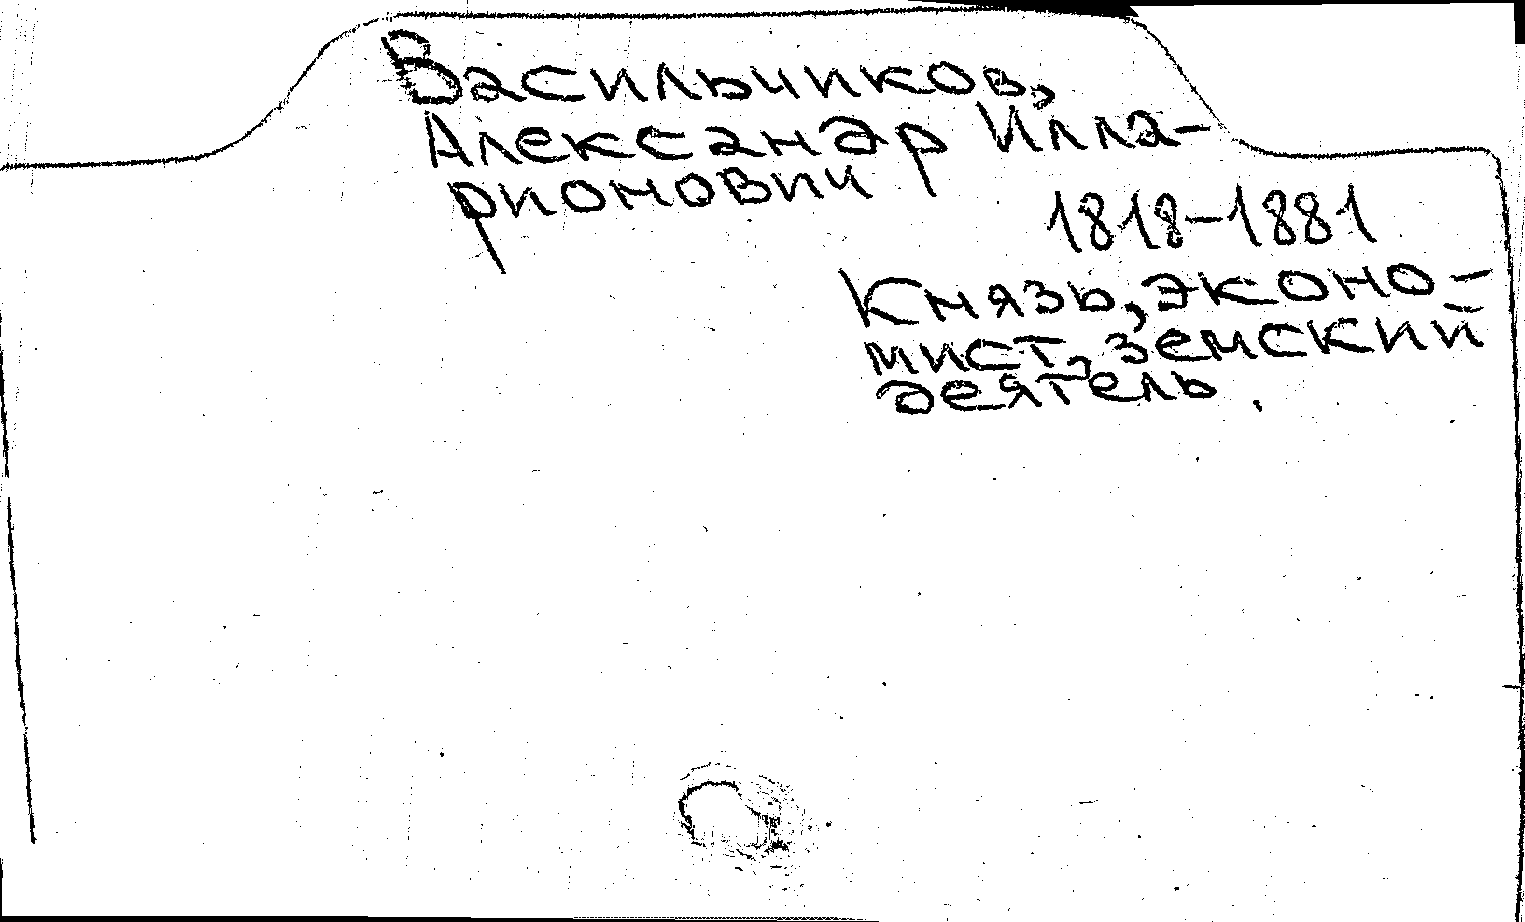 Васильчиков,
Александр Илла-
рионович
1818-1881
Князь, эконо-
мист, земский
деятель.